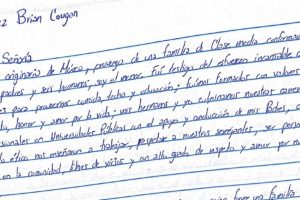 ez Brian Cougan
Señoría
originario de México, provengo de una familia de Clase media conformada
padres y mis hermanos, soy el menor. Fui testigo del esfuerzo incansable de
es para proveernos comida, techo y educación; fuimos formados con valores
to, honor y amor por la vida; mis hermanos y yo culminamos nuestras carreras
esionales en Universidades Públicas con el apoyo y conducción de mis Padres,
la ética nos enseñaron a trabajar, respetar a nuestros semejantes, ser personas
en la comunidad, libres de vicios y un alto grado de respeto y amor por
una familia